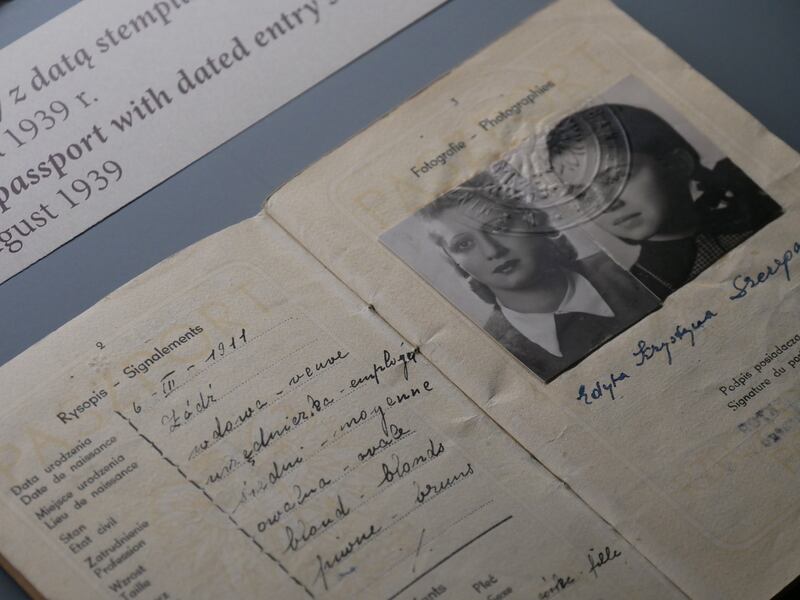 z datą stempla
1939 r.
passport with dated entry
gust 1939
2
Rysopis - Signalements
Data urodzenia
Date de naissance
6 - III - 1911
Miejsce urodzenia
Lieu de naissance
Łódź
Stan cywil
Etat civil
wdowa - veuve
Zatrudnienie
Profession
urzędniczka - employée
Wzrost
Taille
średni - moyenne
owalna - ovale
blond - blonds
piwne - bruns
Płeć
Sexe
fille
3
Fotografie - Photographies
PASZPORT
Edyta Krystyna Szczepa
Podpis posiadacza
Signature du po